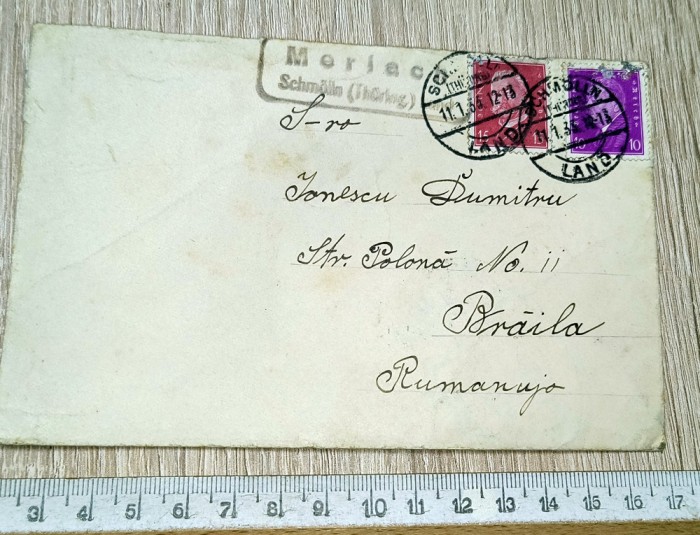 Merlac
Schmölln (Thüring.)
SCHMÖLLN
(THÜRING)
11.1.35. 12-13
LAND
15 15
SCHMÖLLN
11.1.35. 12-13
LAND
10 10
S-ro
Ionescu Dumitru
Str. Polonă No. 11
Brăila
Rumanujo
3 4 5 6 7 8 9 10 11 12 13 14 15 16 17